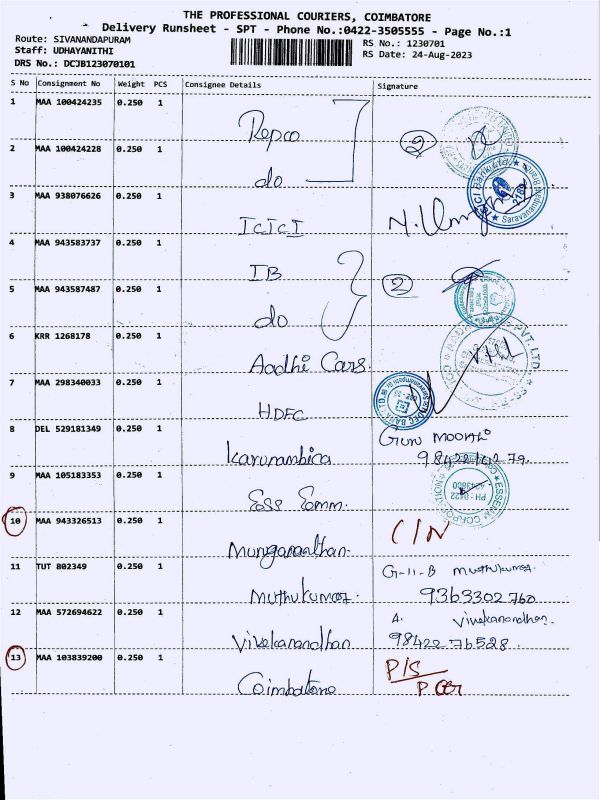 THE PROFESSIONAL COURIERS, COIMBATORE
Delivery Runsheet - SPT - Phone No.:0422-3505555 - Page No.:1
Route: SIVANANDAPURAM
RS No.: 1230701
Staff: UDHAYANITHI
RS Date: 24-Aug-2023
DRS No.: DCJB123070101
S No Consignment No Weight PCS Consignee Details Signature
1 MAA 100424235 0.250 1 Repco
2 MAA 100424228 0.250 1 do 2
3 MAA 938076626 0.250 1 ICICI
4 MAA 943583737 0.250 1 IB
5 MAA 943587487 0.250 1 do 2
6 KRR 1268178 0.250 1 Aadhi Cars.
7 MAA 298340033 0.250 1 HDFC
8 DEL 529181349 0.250 1 Karunambica Guru
9 MAA 105183353 0.250 1 Ess Emm.
ESSEMM CORPORATION
PH : 0422
4243800
10 MAA 943326513 0.250 1 Murugananthan. C/N
11 TUT 802349 0.250 1 Muthukumar G-11-B Muthukumar.
9363302760
12 MAA 572694622 0.250 1 Vivekanandhan A. Vivekanandhan.
98422 76528
13 MAA 103839200 0.250 1 Coimbatore P/S